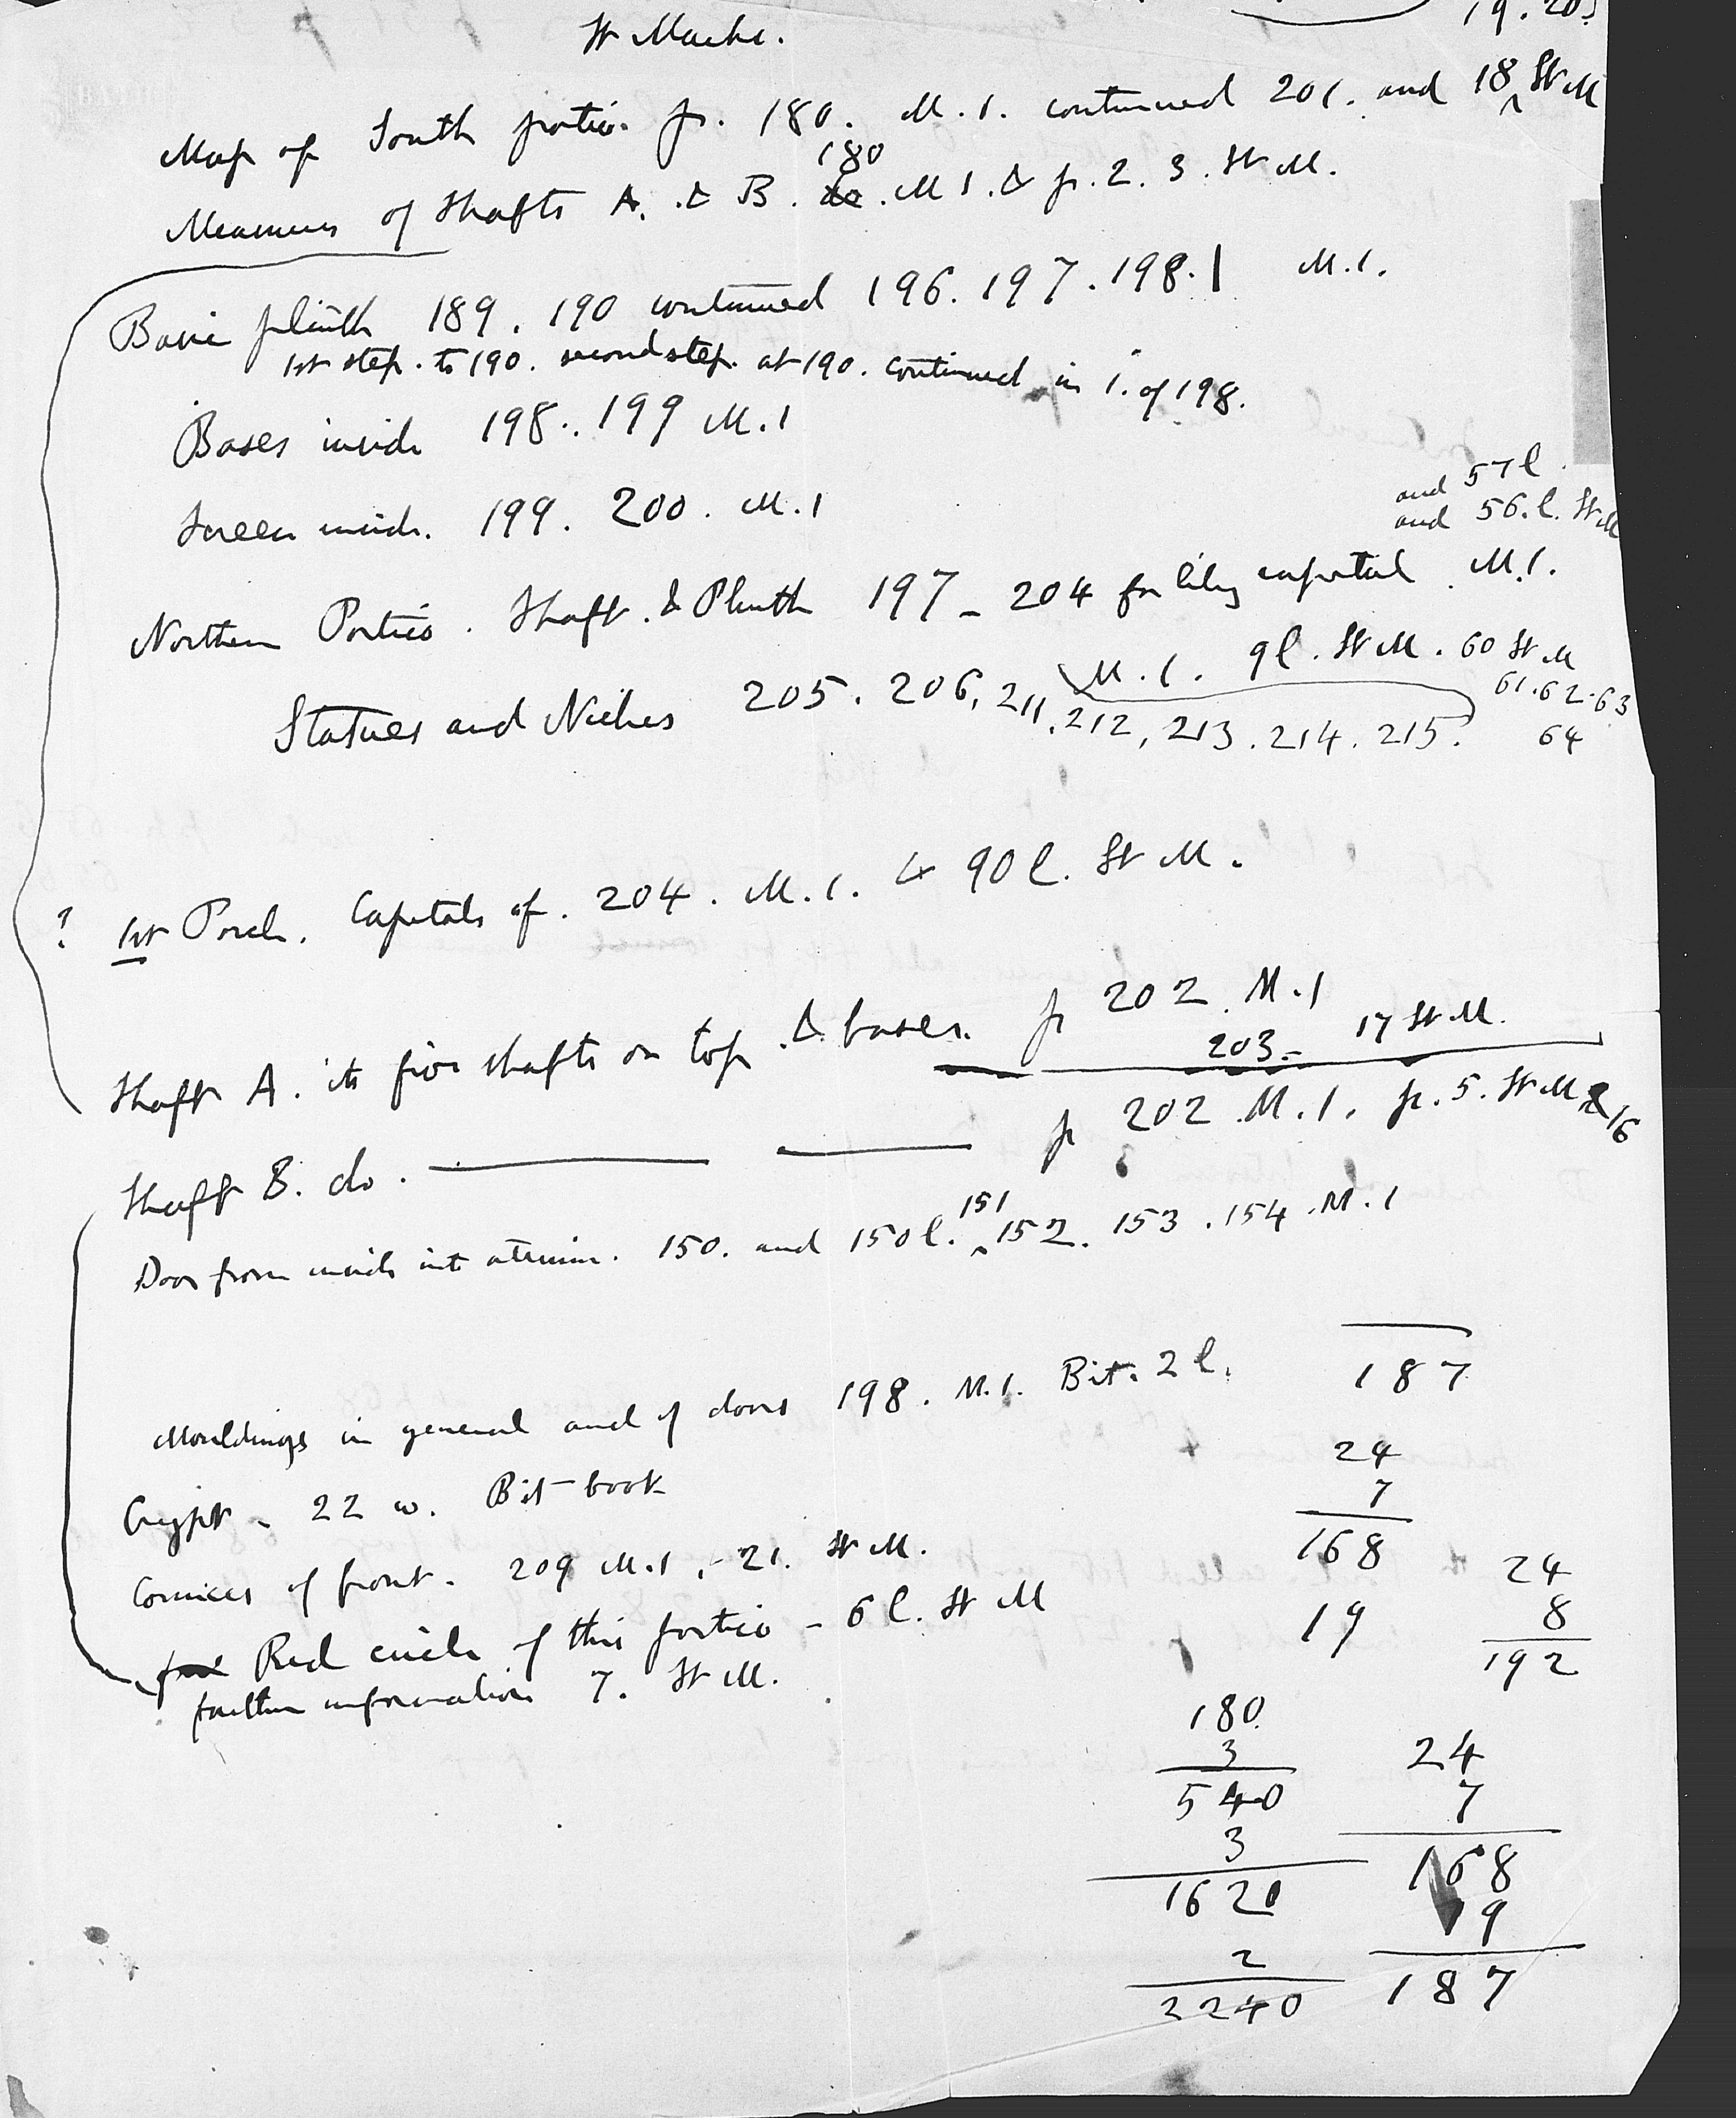 19. 20.
St Marks.
Map of South portico. p. 180. M.1. continued 201. and 18 ^ St M
180
Measures of Shafts A. & B. do. M 1. & p. 2. 3. St M.
Basic plinth 189. 190 continued 196. 197. 198. | M.1.
1st step. to 190. second step. at 190. continued in 1. of 198.
Bases inside 198.. 199 M.1
and 57 l.
Screen inside. 199. 200. M.1
and 56. l. St M
Northern Portico. Shaft. & Plinth 197 - 204 for lily capital. M.1.
M.1. 9 l. St M. 60 St M
Statues and Niches 205. 206, 211. 212, 213. 214. 215.
61. 62. 63
64
? 1st Porch. Capitals of. 204. M.1. & 90 l. St M.
Shaft A. its five shafts on top. & bases. p 202. M.1
203 - 17 St M.
Shaft B. do. p 202. M.1. p. 5. St M 16
151
Door from inside into atrium. 150. and 150 l. ^ 152. 153. 154. M.1
187
Mouldings in general and of doors 198. M.1. Bit. 2 l.
24
7
168
19
Crypt - 22 w. Bit-book
Cornices of front. 209 M.1. - 21. St M.
24
8
192
Red circle of this portico - 6 l. St M
further information 7. St M.
180.
3
540
3
1620
2
2240
24
7
168
19
187